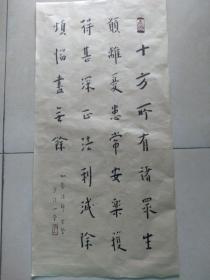 十方所有諸眾生
願離憂患常安樂獲
得甚深正法利滅除
煩惱盡無餘